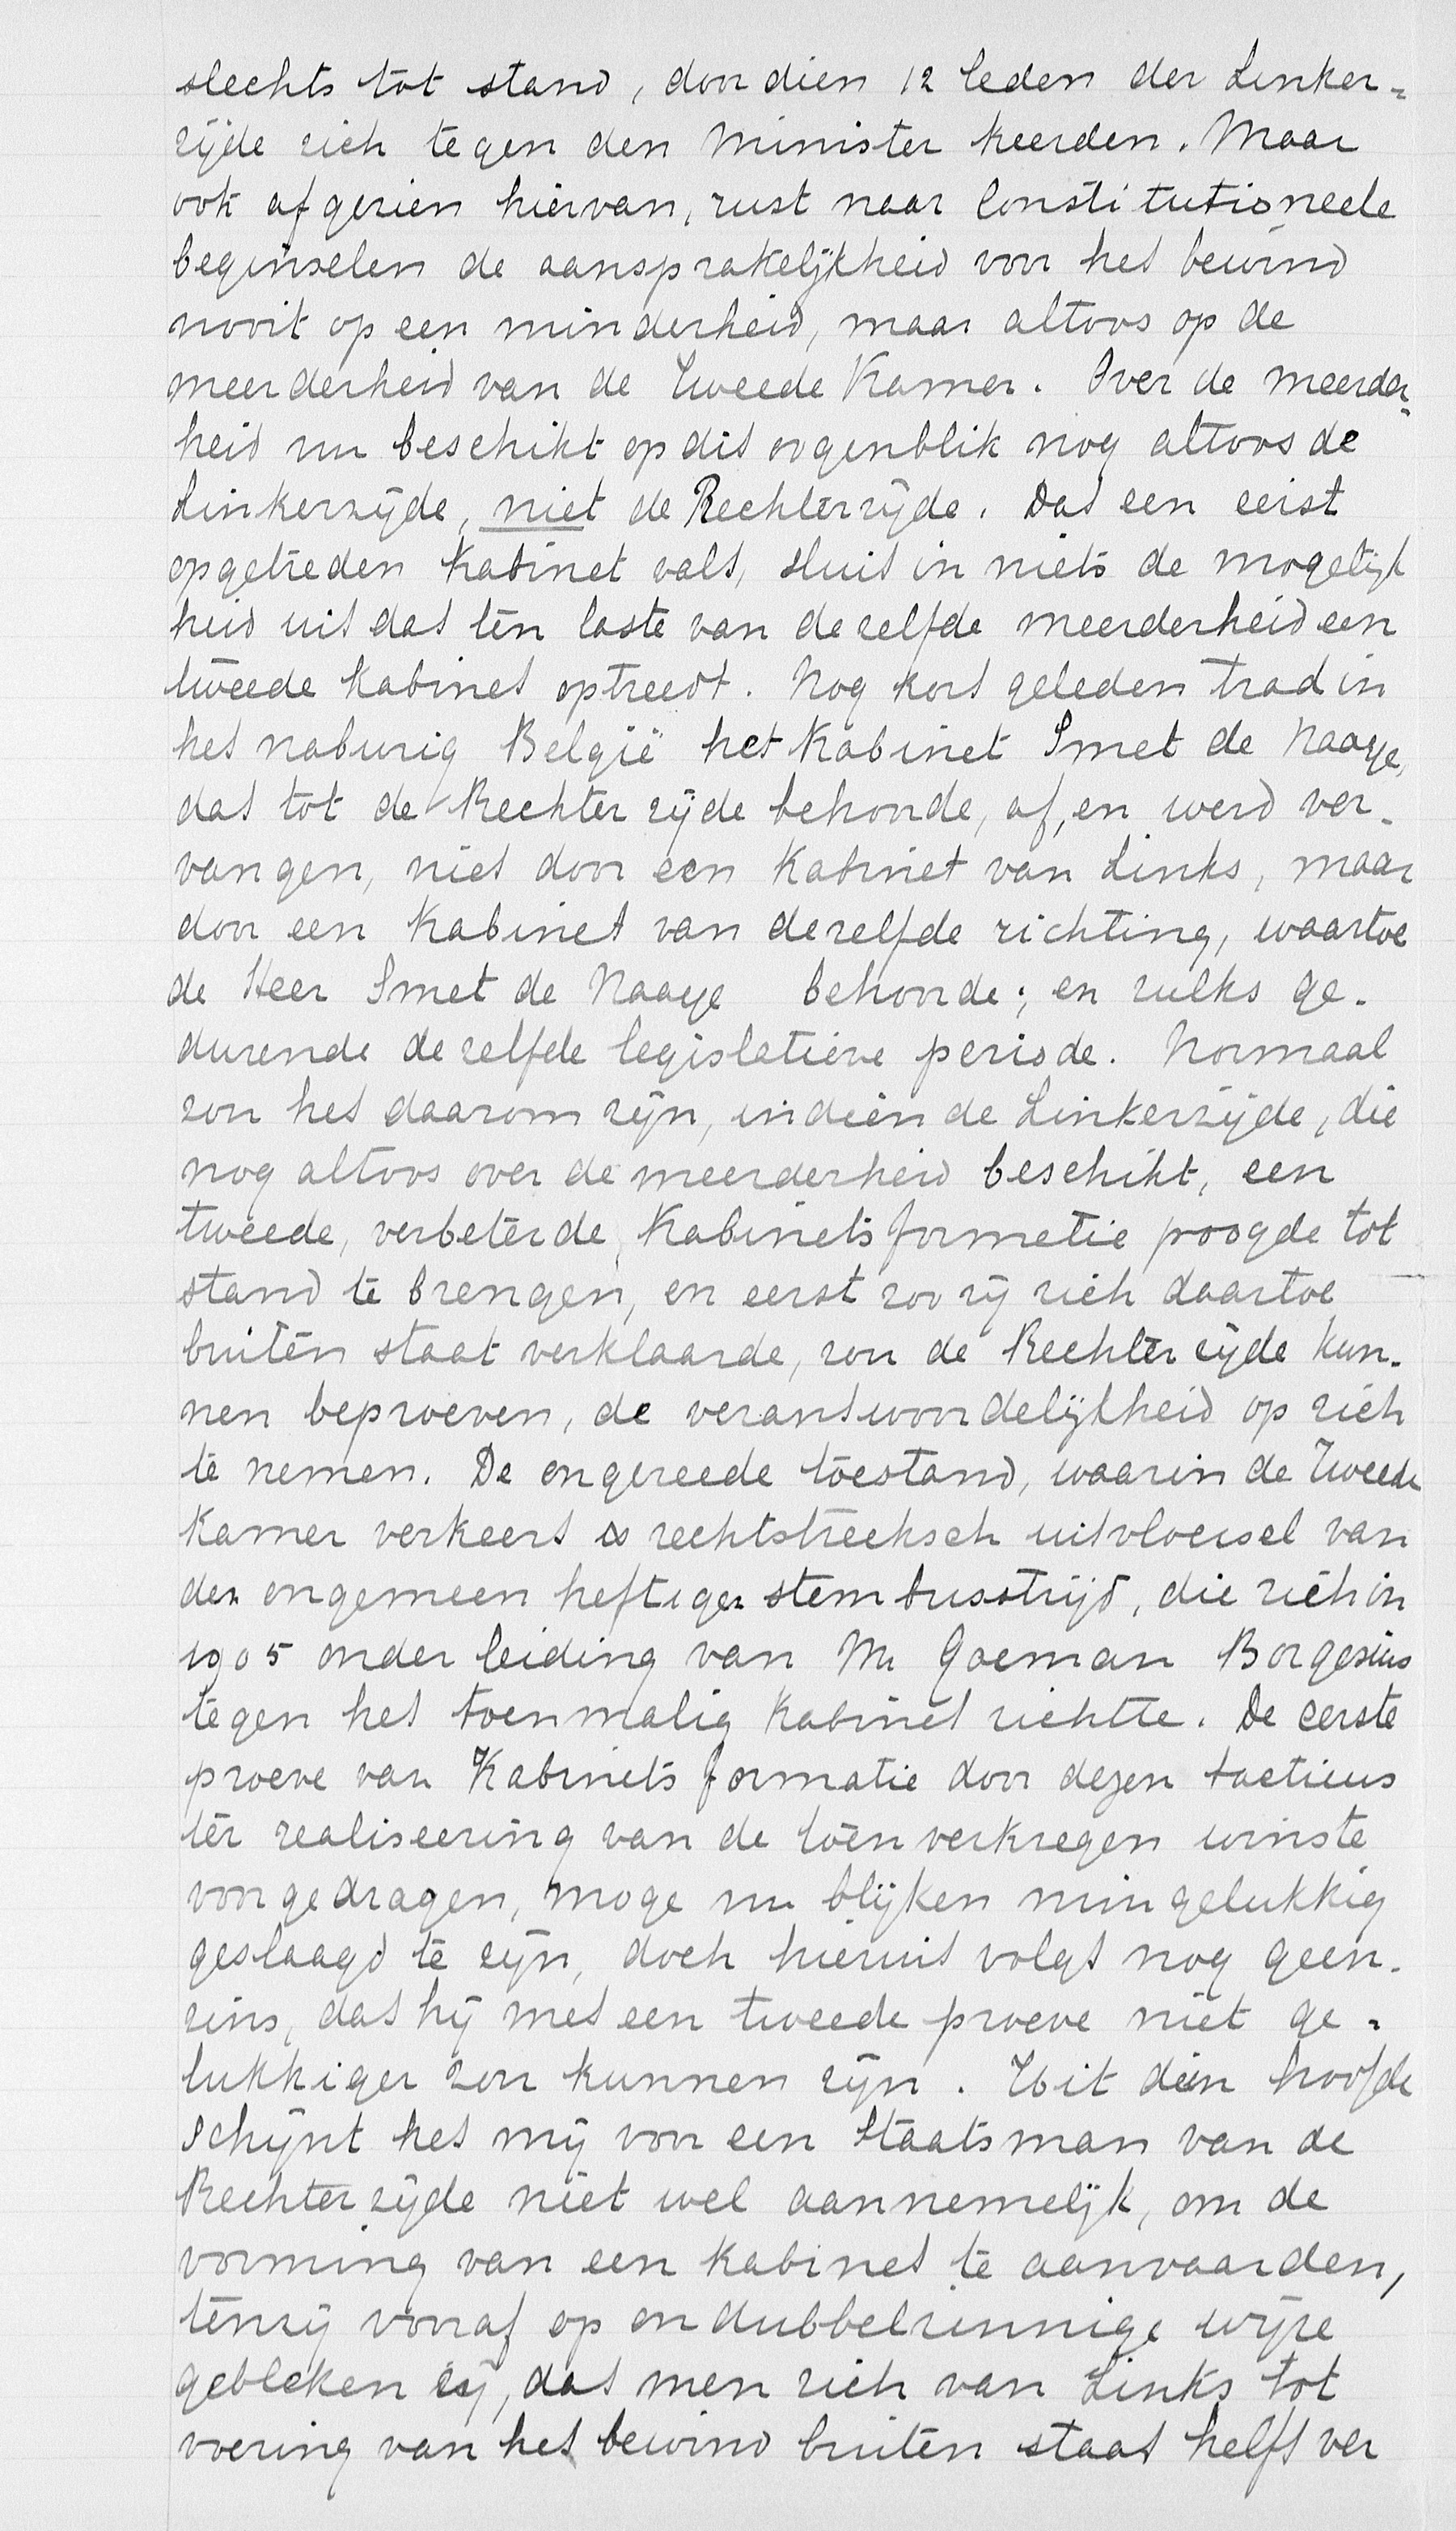 slechts tot stand, doordien 12 leden der Linker=
zijde zich tegen den Minister keerden. Maar
ook afgezien hiervan, rust naar Constitutioneele
beginselen de aansprakelijkheid voor het bewind
nooit op een minderheid, maar altoos op de
meerderheid van de Tweede Kamer. Over de meerder=
heid nu beschikt op dit oogenblik nog altoos de
Linkerzijde, niet de Rechterzijde. Dat een eerst
opgetreden Kabinet valt, sluit in niets de mogelijk
heid uit dat ten laste van dezelfde meerderheid een
tweede Kabinet optreedt. Nog kort geleden trad in
het naburig België het Kabinet Smet de Naaye,
dat tot de Rechterzijde behoorde, af, en werd ver-
vangen, niet door een Kabinet van Links, maar
door een Kabinet van dezelfde richting, waartoe
de Heer Smet de Naaye behoorde; en zulks ge-
durende dezelfde legislatieve periode. Normaal
zou het daarom zijn, indien de Linkerzijde, die
nog altoos over de meerderheid beschikt, een
tweede, verbeterde, Kabinetsformatie poogde tot
stand te brengen, en eerst zoo zij zich daartoe
buiten staat verklaarde, zou de Rechterzijde kun-
nen beproeven, de verantwoordelijkheid op zich
te nemen. De ongereede toestand, waarin de Tweede
Kamer verkeert is rechtstreeksch uitvloeisel van
den ongemeen heftigen stembusstrijd, die zich in
1905 onder leiding van Mr Goeman Borgesius
tegen het toenmalig Kabinet richtte. De eerste
proeve van Kabinetsformatie door dezen tacticus
ter realiseering van de toen verkregen winste
voorgedragen, moge nu blijken min gelukkig
geslaagd te zijn, doch hieruit volgt nog geen-
zins, dat hij met een tweede proeve niet ge=
lukkiger zou kunnen zijn. Uit dien hoofde
schijnt het mij voor een Staatsman van de
Rechterzijde niet wel aannemelijk, om de
vorming van een Kabinet te aanvaarden,
tenzij vooraf op ondubbelzinnige wijze
gebleken zij, dat men zich van Links tot
voering van het bewind buiten staat helft ver